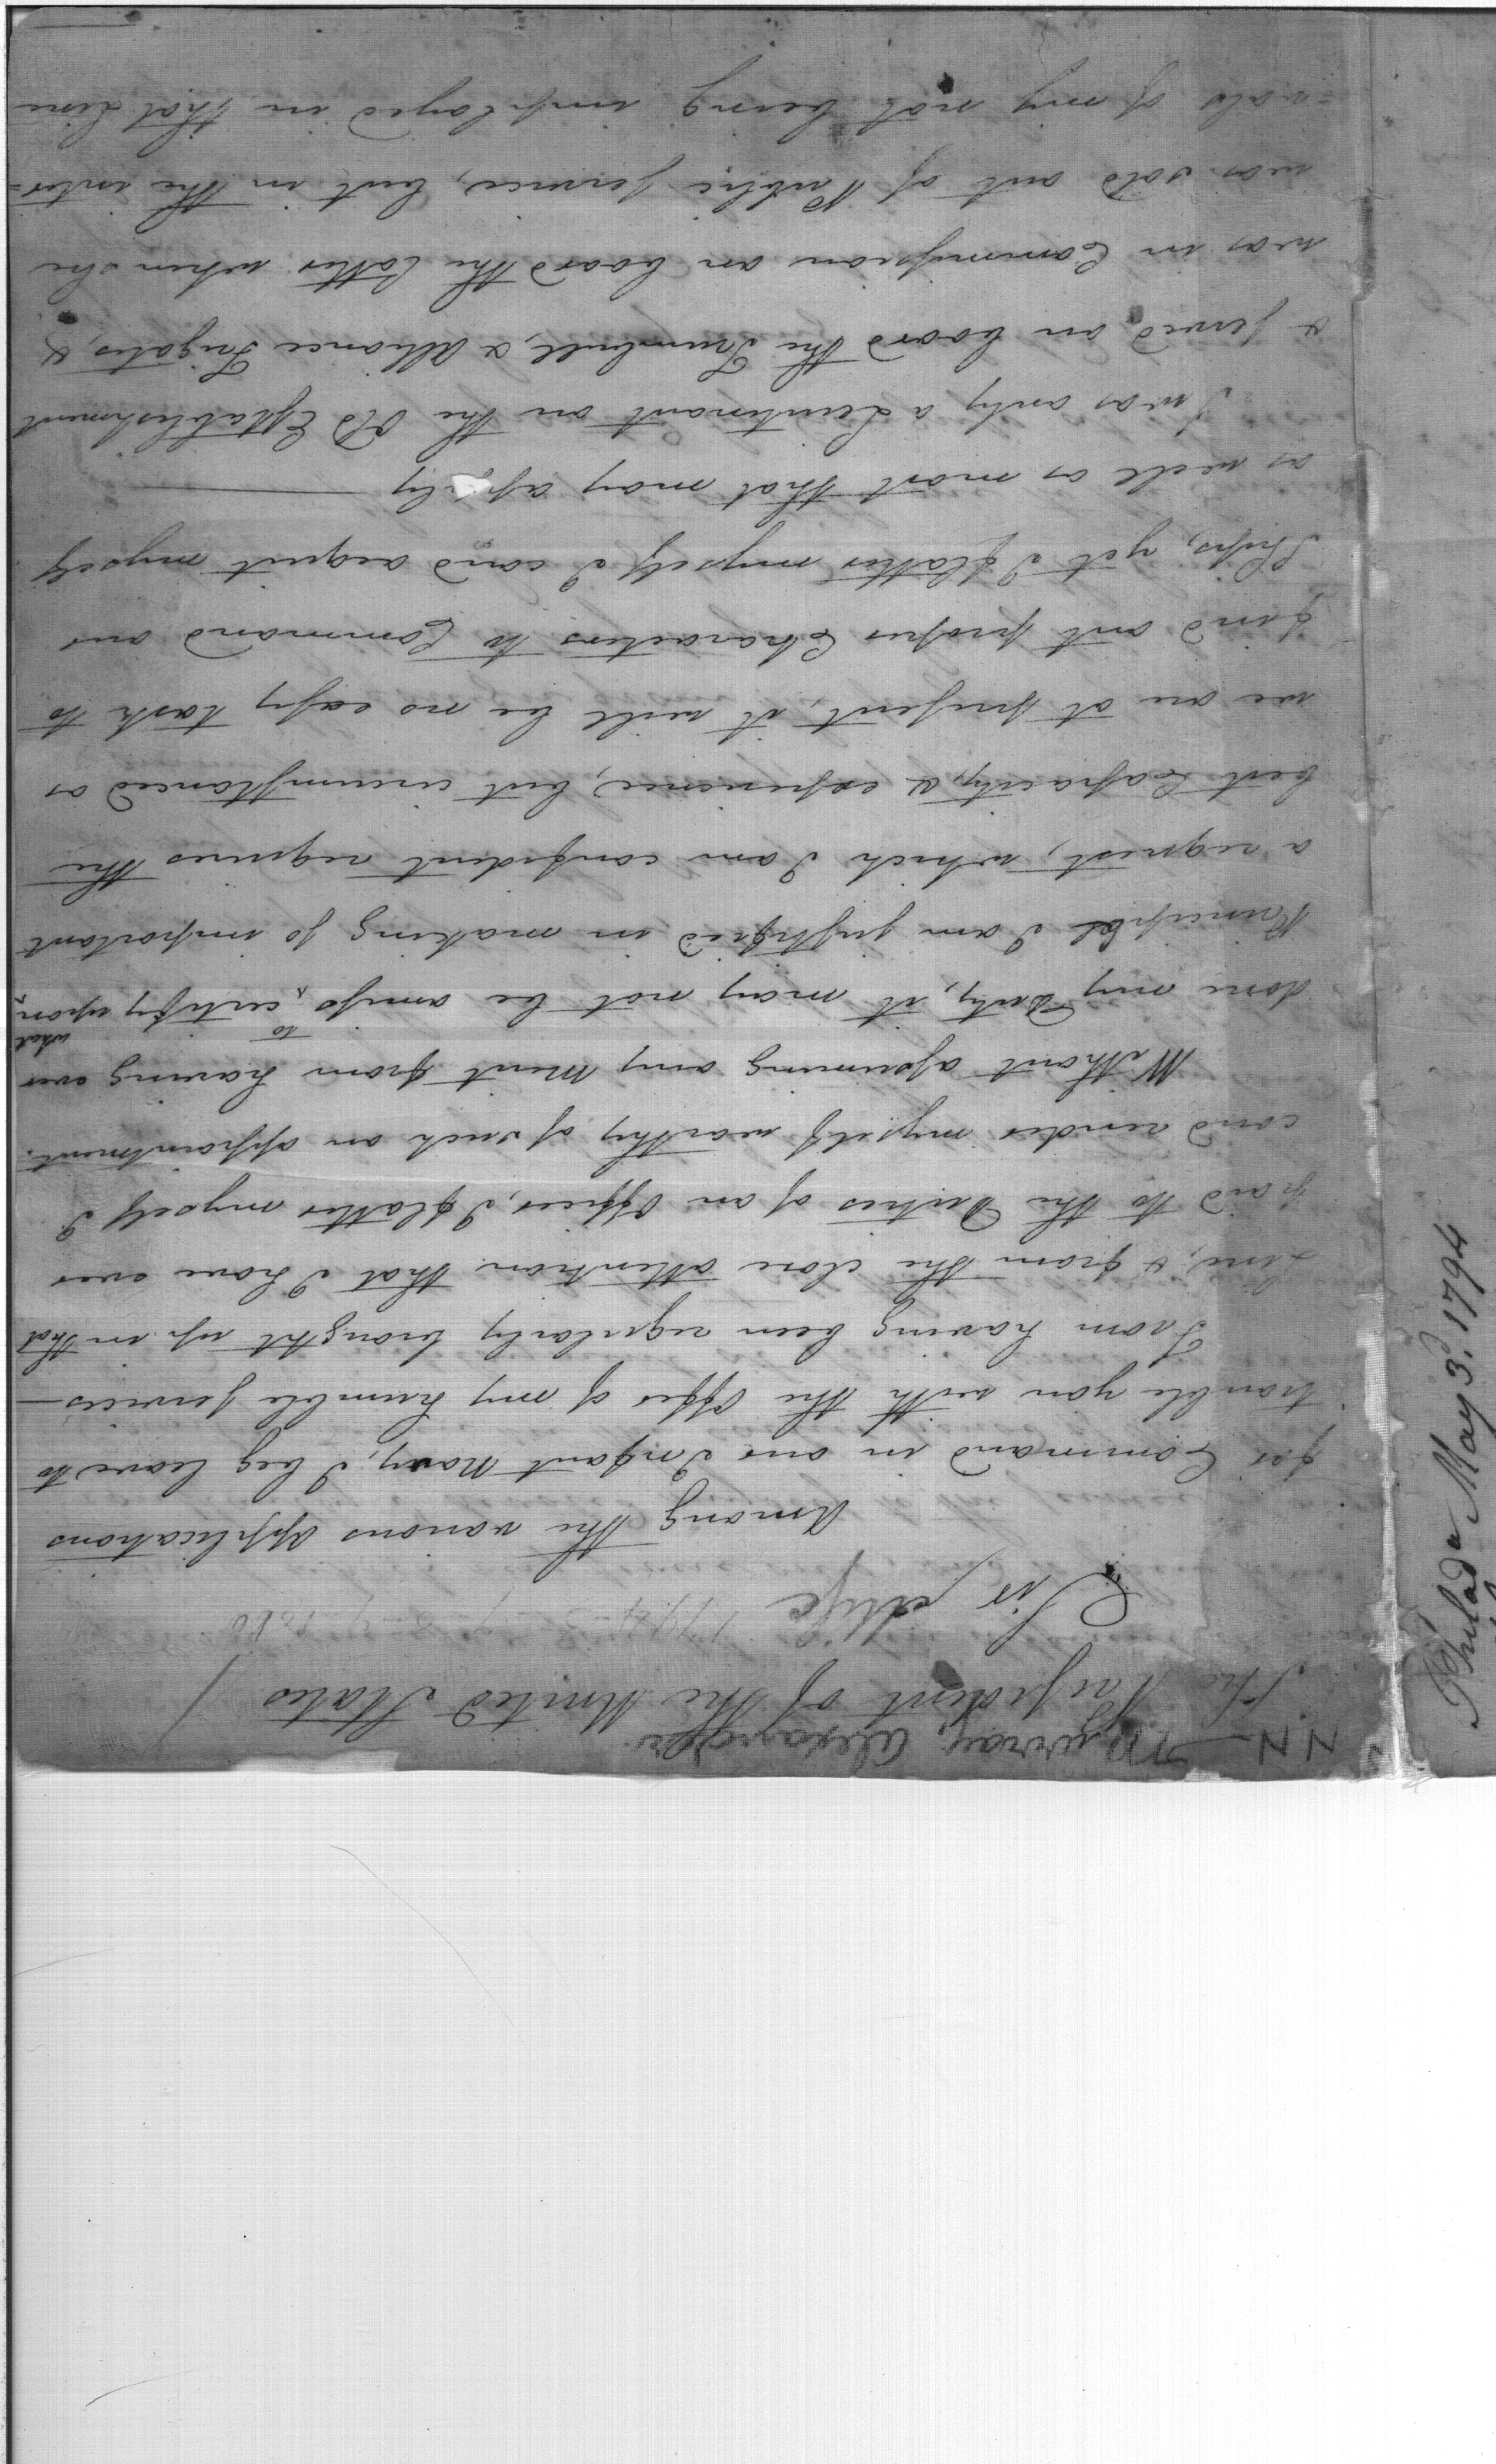 N N Murray, Alexander
The President of the United States
Sir
Among the various applications
for Command in our Infant Navy, I beg leave to
trouble you with the offer of my humble services—
From having been regularly brought up in that
Line, & from the close attention that I have ever
paid to the Duties of an Officer, I flatter myself I
coud render myself worthy of such an appointment.
Without assuming any Merit from having ever
done my Duty, it may not be amiss to certify upon what
Principle I am justified in making so important
a request, which I am confident requires the
best Capacity, & experience, but circumstanced as
we are at present, it will be no easy task to
find out proper Characters to Command our
Ships, yet I flatter myself I coud acquit myself
as well as most that may apply
I was only a Lieutenant on the Old Establishment
& served on board the Trumbull, & Alliance Frigates, &
was in Commission on board the latter when she
was sold out of Public service, but in the inter=
=vals of my not being imployed in that Line
Philada May 3d. 1794